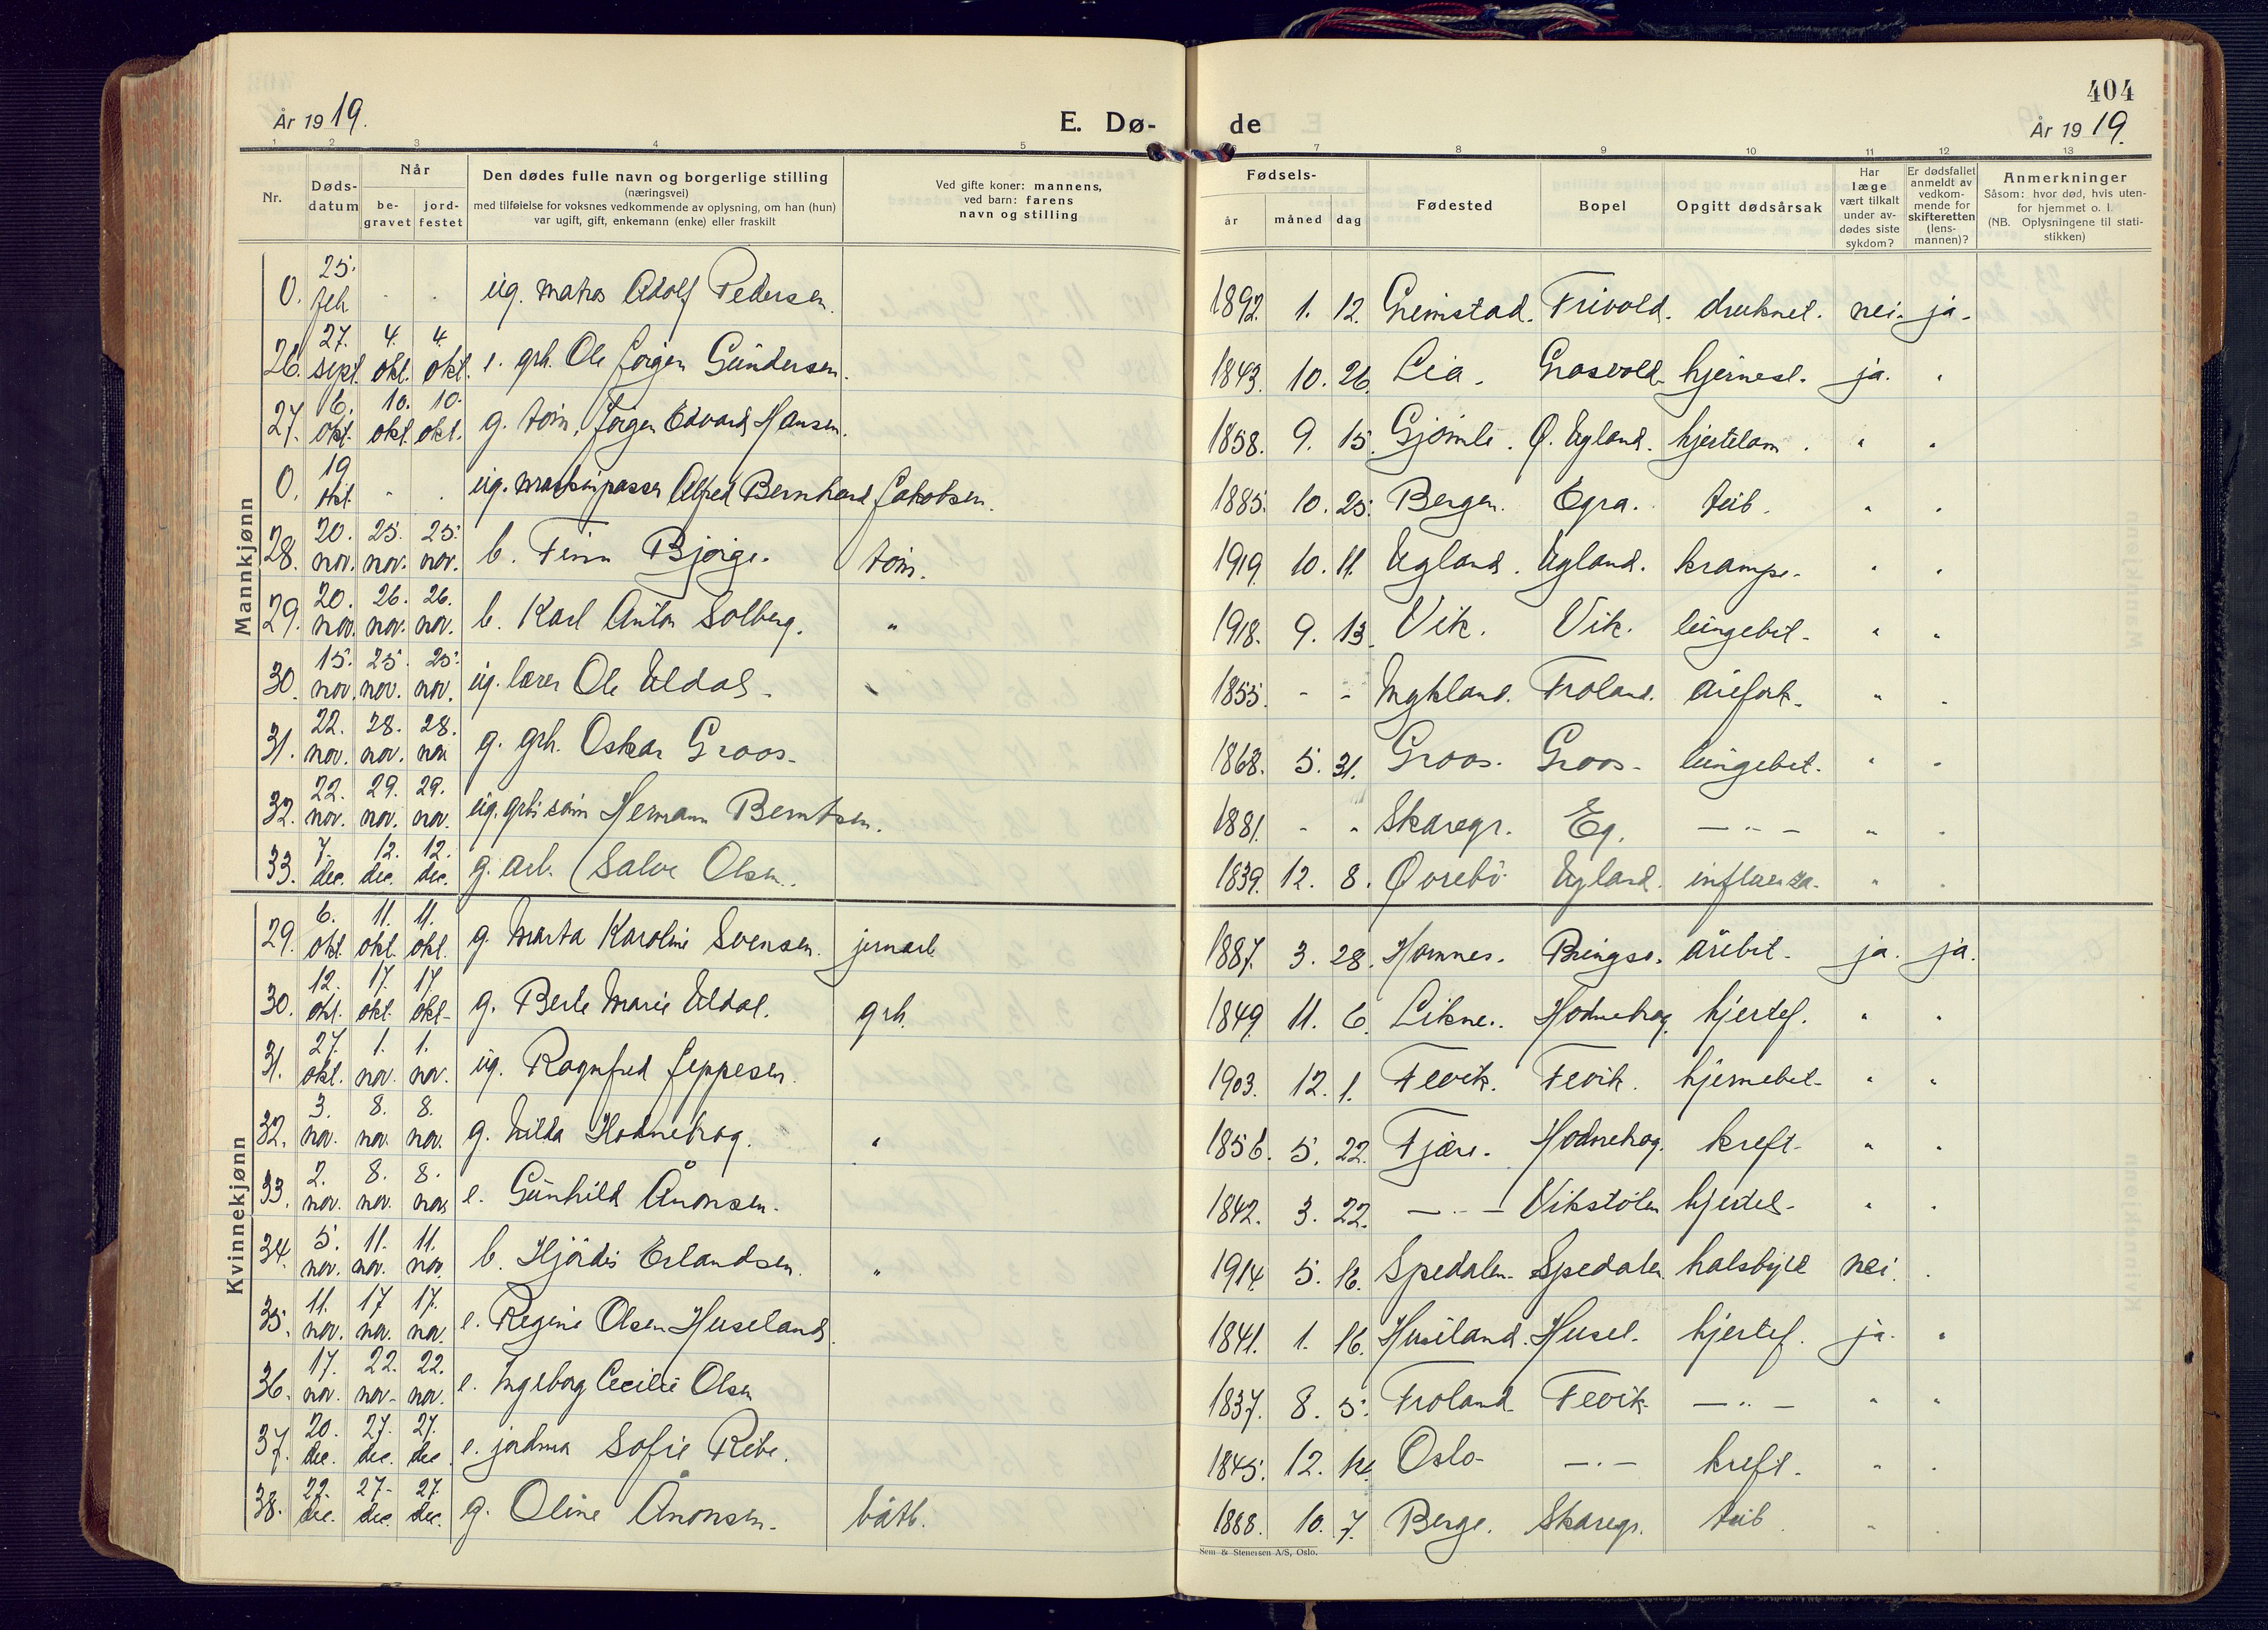 404
År 1919.
E. Dø-
de
År 1919.
1 2 3 4 5 6 7 8 9 10 11 12 13
Nr.
Døds-
datum
Når
be-
gravet
jord-
festet
Den dødes fulle navn og borgerlige stilling
(næringsvei)
med tilføielse for voksnes vedkommende av oplysning, om han (hun)
var ugift, gift, enkemann (enke) eller fraskilt
Ved gifte koner: mannens,
ved barn: farens
navn og stilling
Fødsels-
år
måned
dag
Fødested
Bopel
Opgitt dødsårsak
Har
læge
vært tilkalt
under av-
dødes siste
sykdom?
Er dødsfallet
anmeldt av
vedkom-
mende for
skifteretten
(lens-
mannen)?
Anmerkninger
Såsom: hvor død, hvis uten-
for hjemmet o. l.
(NB. Oplysningene til stati-
stikken)
Mannkjønn
0. 25. feb. - - ug. matros Adolf Pedersen. 1892. 1. 12. Grimstad. Frivold. druknet. nei. ja.
26. 27. sept. 4. okt. 4. okt. e. grb. Ole Jørgen Gundersen. 1843. 10. 26. Lia. Grosvold. hjernesl. ja. "
27. 6. okt. 10. okt. 10. okt. g. tøm. Jørgen Edvard Hansen. 1858. 9. 15. Gjømle. Ø. Ugland. hjertelam. " "
0. 19 okt. - - ug. maskinpasser Alfred Bernhard Jakobsen. 1885. 10. 25. Bergen. Egra. tub. " "
28. 20. nov. 25. nov. 25. nov. b. Finn Bjorge. tøm. 1919. 10. 11. Ugland. Ugland. krampe. " "
29. 20. nov. 26. nov. 26. nov. b. Karl Anton Solberg. " 1918. 9. 13. Vik. Vik. lungebet. " "
30. 15. nov. 25. nov. 25. nov. ug. lærer Ole Uldal. " 1855. - - Mykland. Froland. årefork. " "
31. 22. nov. 28. nov. 28. nov g. grb. Oskar Groos. 1868. 5. 31. Groos. Groos. lungebet. " "
32. 22. nov. 29. nov. 29. nov. ug. grb.søn Hermann Berntsen. 1881. - - Skaregr. Eg. — " — " "
33. 7. dec. 12. dec. 12. dec. g. arb. Salve Olsen. 1839. 12. 8. Øvrebø Ugland. influenza. " "
Kvinnekjønn
29. 6. okt. 11. okt. 11. okt. g. Marta Karoline Svensen. jernarb. 1887. 3. 28. Homnes. Bringsv. årebet. ja. ja.
30. 12. okt. 17. okt. 17. okt. g. Berte Marie Uldal. grb. 1849. 11. 6. Likne. Hodnebrog. hjertef. " "
31. 27. okt. 1. nov. 1. nov. ug. Ragnfred Jeppesen. 1903. 12. 1. Fevik. Fevik. hjernebet. " "
32. 3. nov. 8. nov. 8. nov. g. Hilda Hodnebrog. " 1856. 5. 22. Fjære. Hodnebrog. kreft. " "
33. 2. nov. 8. nov. 8. nov e. Gunhild Ånonsen. 1842. 3. 22. — " — Vikstølen hjertel. " "
34. 5. nov. 11. nov. 11. nov. b. Hjördis Erlandsen. " 1914. 5. 16. Spedalen. Spedalen. halsbyld nei. "
35. 11. nov. 17 nov. 17. nov. e. Regine Olsen Huseland. 1841. 1. 16. Huseland. Husel. hjertef. ja. "
36. 17. nov. 22. nov. 22. nov. e. Ingeborg Cecilie Olsen 1837. 8. 5. Froland. Fevik — " — " "
37. 20. dec. 27. dec. 27. dec. e. jordma Sofie Ribe. 1845. 12. Oslo. — " — kreft. " "
38. 22. dec. 27. dec. 27. dec. g. Oline Ånonsen. båtb. 1888. 10. 7. Berge. Skaregr. tub. " "
Sem & Stenersen A/S, Oslo.